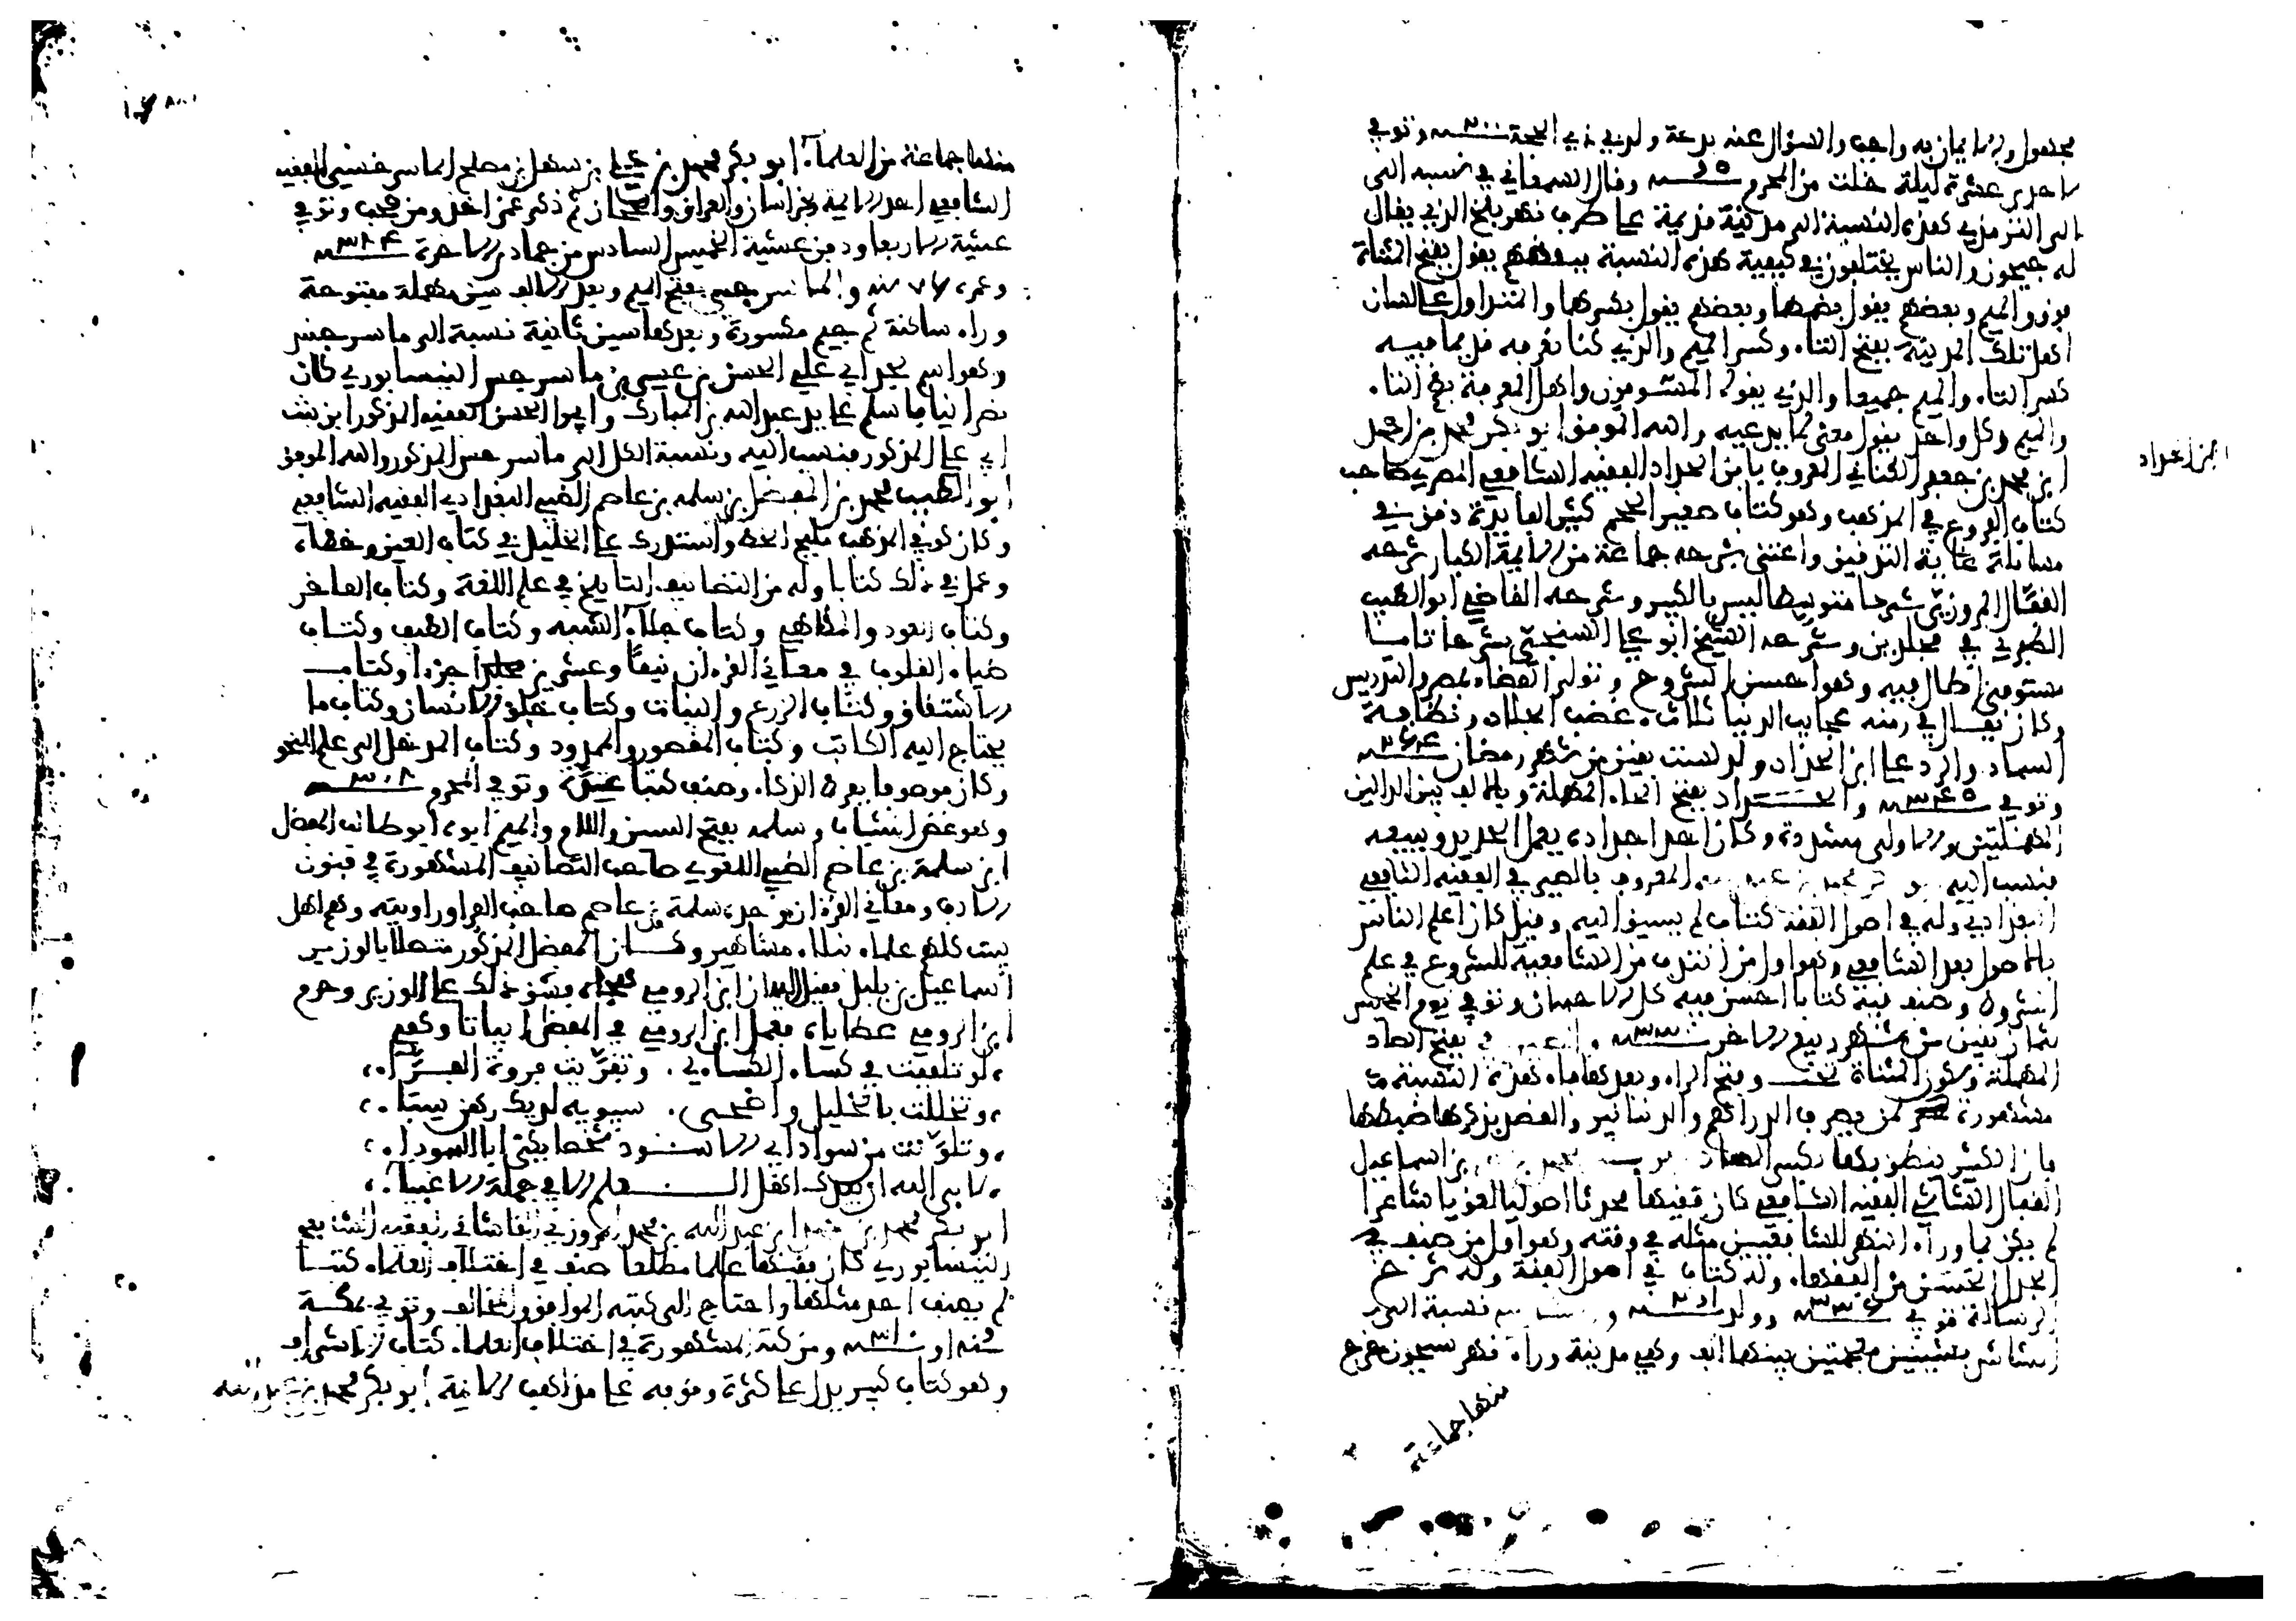 مجهول والايمان به واجب والسؤال عنه بدعة ولد في ذي الحجة وتوفي
لاحدى عشرة ليلة خلت من المحرم وقال السمعاني في نسبه الى
الى الترمذي هذه النسبة الى مدينة قديمة على طرف نهر بلخ الذي يقال
له جيحون والناس يختلفون في كيفية هذه النسبة بعضهم يقول بفتح المثناة
فوق والميم وبعضهم يقول بضمها وبعضهم يقول بكسرها والمتداول على لسان
اهل تلك المدينة بفتح التاء وكسر الميم والذي كنا نعرفه قديما فيه
كسر التاء والميم جميعا والذي يقوله المتنوقون واهل المعرفة بضم التاء
والميم وكل واحد يقول معنى لما يدعيه والله الموفق ابو بكر محمد بن احمد
ابن محمد بن جعفر الكناني المعروف بابن الحداد الفقيه الشافعي المصري صاحب
ابن الحداد
كتاب الفروع في المذهب وهو كتاب صغير الحجم كثير الفايدة دقق في
مسايله غاية التدقيق واعتنى بشرحه جماعة من الايمة الكبار شرحه
القفال المروزي شرحا متوسطا ليس بالكبير وشرحه القاضي ابو الطيب
الطبري في مجلدين وشرحه الشيخ ابو علي السنجي شرحا تاما
مستوفى اطال فيه وهو احسن الشروح وتولى القضاء بمصر والتدريس
وكان يقال في زمنه عجايب الدنيا ثلاث غضب الجلاد ونظافة
السماد والرد على ابن الحداد ولد لست بقين من شهر رمضان
وتوفي والحداد بفتح الحاء المهملة وبالالف بين الدالين
المهملتين والاولى مشددة وكان احد اجداده يعمل الحديد ويبيعه
فنسب اليه المعروف بالصيرفي الفقيه الشافعي
البغدادي وله في اصول الفقه كتاب لم يسبق اليه وقيل كان اعلم الناس
بالاصول بعد الشافعي وهو اول من انتدب من الشافعية للشروع في علم
الشروط وصنف فيه كتابا احسن فيه كل الاحسان وتوفي يوم الخميس
لثمان بقين من شهر ربيع الاخر بفتح الصاد
المهملة وسكون المثناة تحت وفتح الراء وبعدها فاء هذه النسبة
مشهورة لمن يصرف الدراهم والدنانير والقصد بذكرها ضبطها
بن اسماعيل
القفال الشاشي الفقيه الشافعي كان فقيها محدثا اصوليا لغويا شاعرا
لم يكن بما وراء النهر للشافعيين مثله في وقته وهو اول من صنف في
الجدل الحسن من الفقهاء وله كتاب في اصول الفقه وله شرح
الرسالة توفي وولد نسبة الى
الشاش بشينين معجمتين بينهما الف وهي مدينة وراء نهر سيحون خرج
منها جماعة
منها جماعة من العلماء ابو بكر محمد بن علي بن سهل بن مصلح الماسرجسي الفقيه
الشافعي احد الايمة بخراسان والعراق والحجاز ثم ذكر عمن اخذ ومن صحب وتوفي
عشية الاربعا ودفن عشية الخميس السادس من جمادى الاخرة
وعمره سنه والماسرجسي بفتح الميم وبعد الالف سين مهملة مفتوحة
وراء ساكنة ثم جيم مكسورة وبعدها سين ثانية نسبة الى ماسرجس
وهو اسم لجد ابي علي الحسن بن عيسى بن ماسرجس النيسابوري كان
نصرانيا فاسلم على يد عبد الله بن المبارك وابو الحسن الفقيه المذكور ابن بنت
ابي علي المذكور فنسب اليه ونسبة الكل الى ماسرجس المذكور والله الموفق
ابو الطيب محمد بن المفضل بن سلمه بن عاصم الضبي البغدادي الفقيه الشافعي
وكان كوفي المذهب مليح الخط واستدرك على الخليل في كتاب العين وخطاه
وعمل في ذلك كتابا وله من التصانيف التاريخ في علم اللغة وكتاب الفاخر
وكتاب العود والملاهي وكتاب جلاء الشبه وكتاب الطيف وكتاب
ضياء القلوب في معاني القرءان نيفا وعشرين جزءا وكتاب
الاشتقاق وكتاب الزرع والنبات وكتاب خلق الانسان وكتاب ما
يحتاج اليه الكاتب وكتاب المقصور والممدود وكتاب المدخل الى علم النحو
وكان موصوفا بفرط الذكاء وصنف كتبا عدة وتوفي المحرم
وهو غض الشباب وسلمه بفتح السين واللام والميم ابوه ابو طالب المفضل
ابن سلمة بن عاصم الضبي اللغوي صاحب التصانيف المشهورة في فنون
الادب ومعاني القرءان وجده سلمة بن عاصم صاحب الفرا وراويته وهم اهل
بيت كلهم علماء نبلاء مشاهير وكان المفضل المذكور متصلا بالوزير
اسماعيل بن بلبل فقيل له ان ابن الرومي هجاه فشق ذلك على الوزير وحرم
ابن الرومي عطاياه فعمل ابن الرومي في المفضل ابياتا وهي
لو تلففت في كساء الكساءي . وتفريت فروة الفراء
وتخللت بالخليل واضحى . سيبويه لديك رهن سباء
وتلونت من سواد ابي الاسود شخصا يكنى ابا السوداء
لابى الله ان يعدك اهل العلم الا في جملة الاغبياء
ابو بكر محمد بن عبد الله بن محمد المروزي الفقيه الشافعي
النيسابوري كان فقيها عالما مطلعا صنف في اختلاف العلماء كتبا
لم يصنف احد مثلها واحتاج الى كتبه الموافق والمخالف وتوفي بمكة
سنه او ومن كتبه المشهورة في اختلاف العلماء كتاب الاشراف
وهو كتاب كبير يدل على كثرة وقوفه على مذاهب الايمة ابو بكر محمد بن